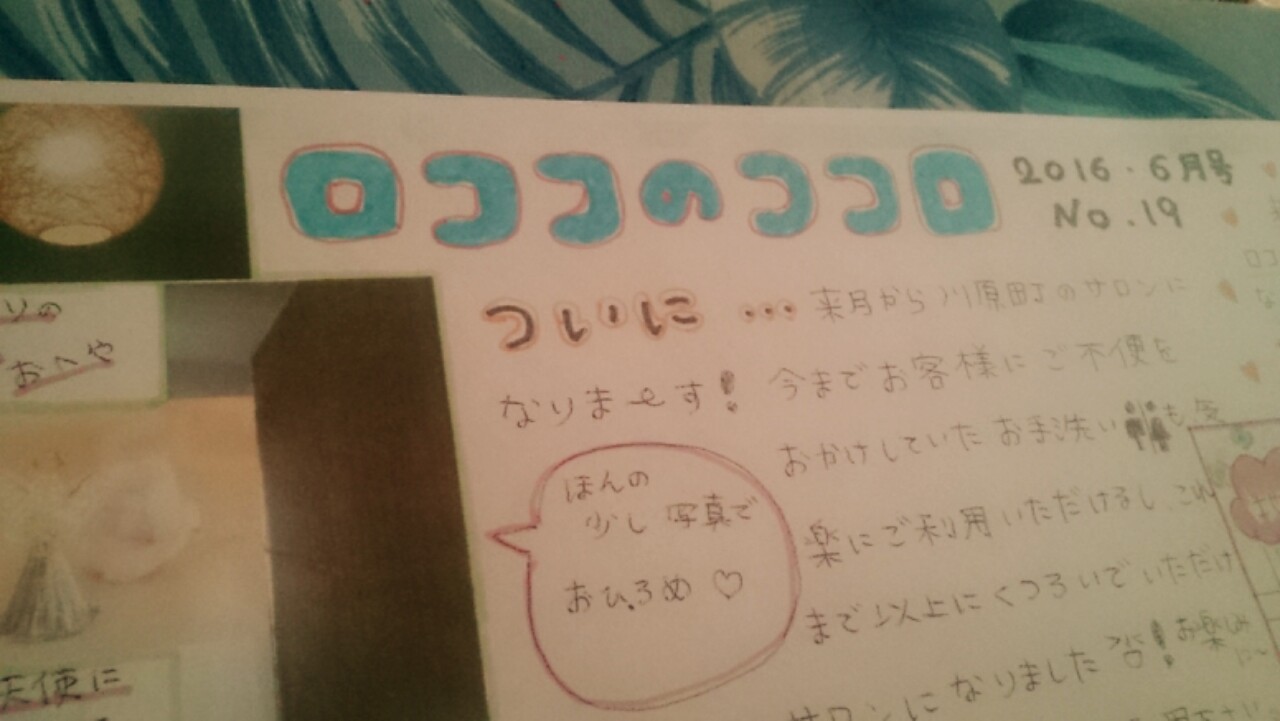 ロココのココロ
2016・6月号
No.19
ついに … 来月から川原町のサロンに
なりまーす! 今までお客様にご不便を
おかけしていたお手洗いも気
楽にご利用いただけるし、これ
まで以上にくつろいでいただけ
サロンになりました 
お楽しみに〜
ほんの
少し 写真で
おひろめ ♡
りの
おへや
天使に